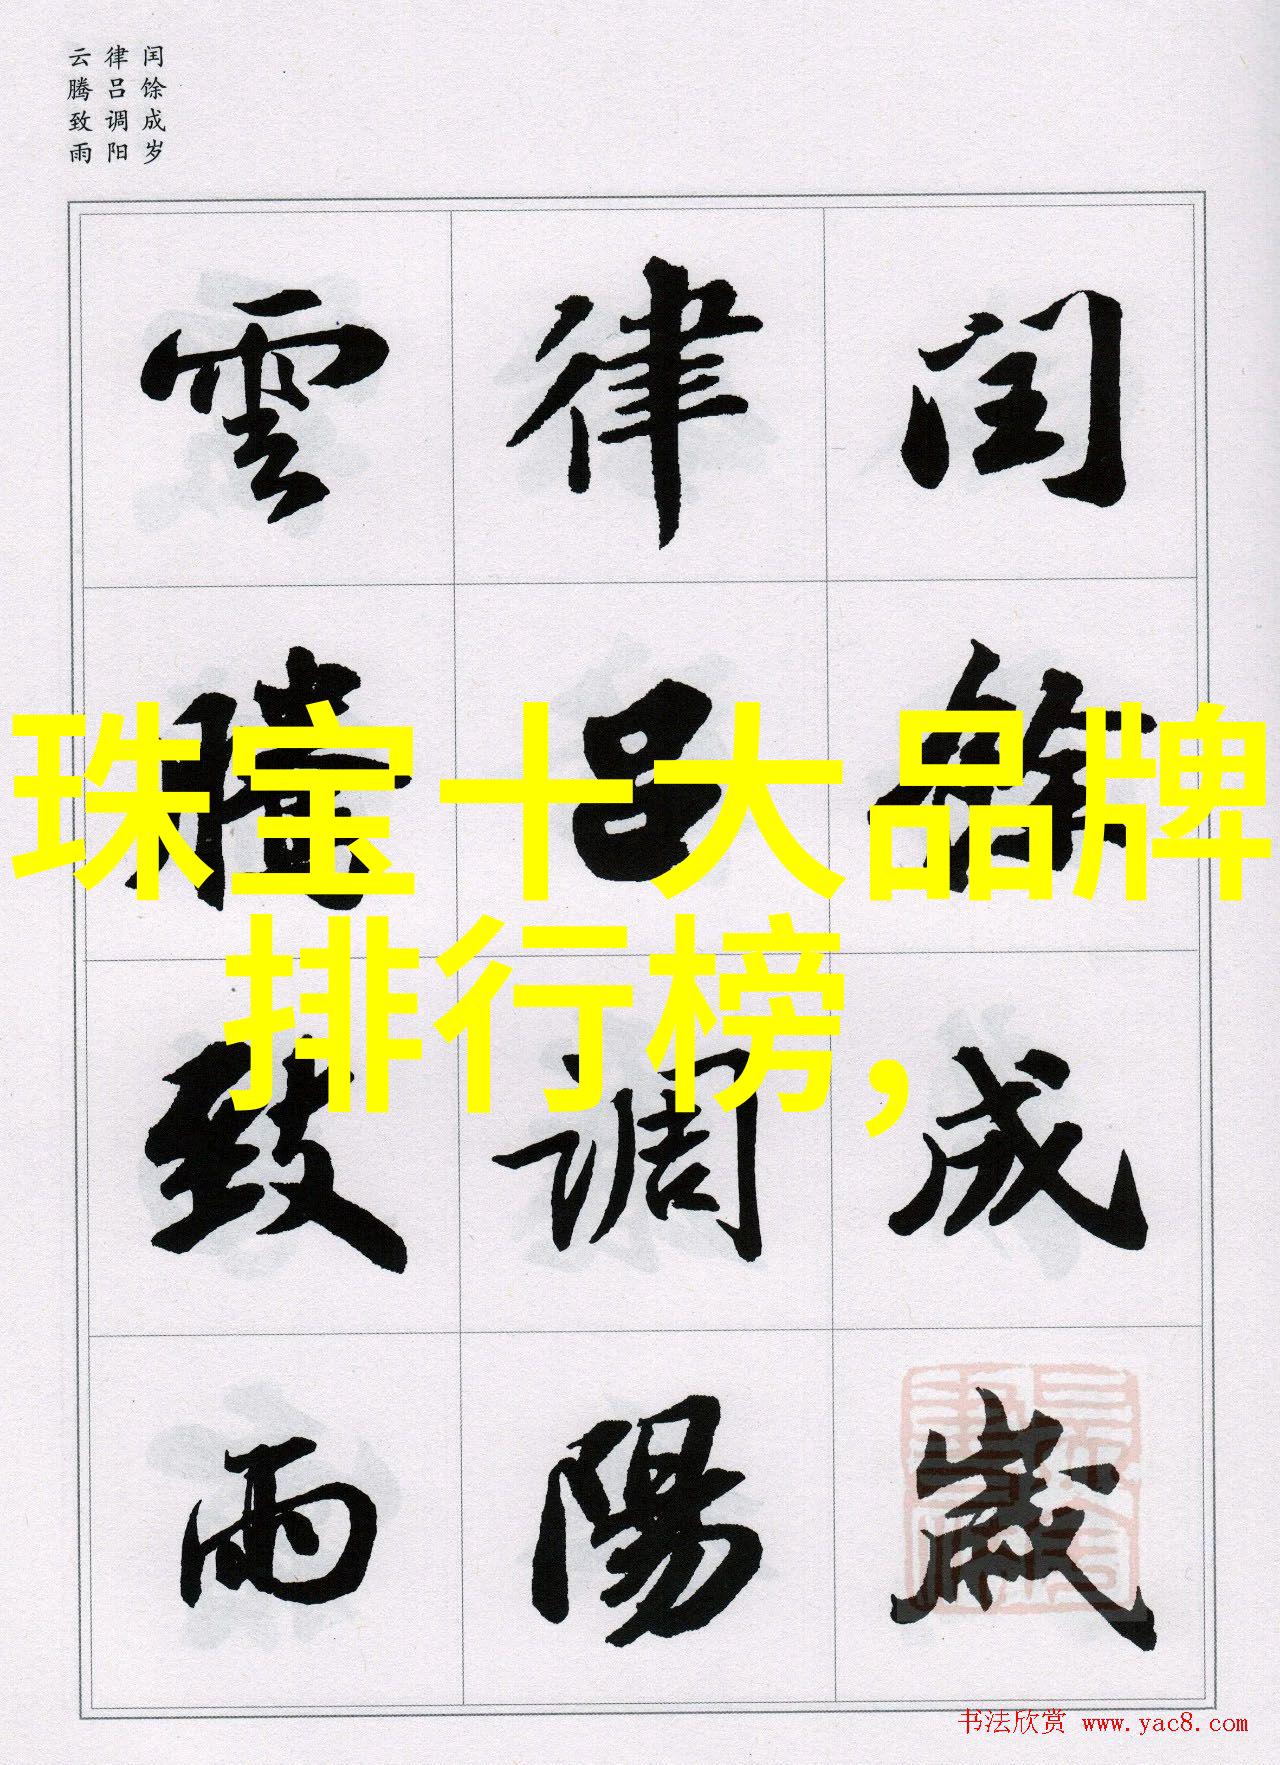 闰馀成岁
律吕调阳
云腾致雨
閏餘成歲
律吕調陽
雲騰致雨
珠宝十大品牌
排行榜,
书法欣赏 www.yac8.com